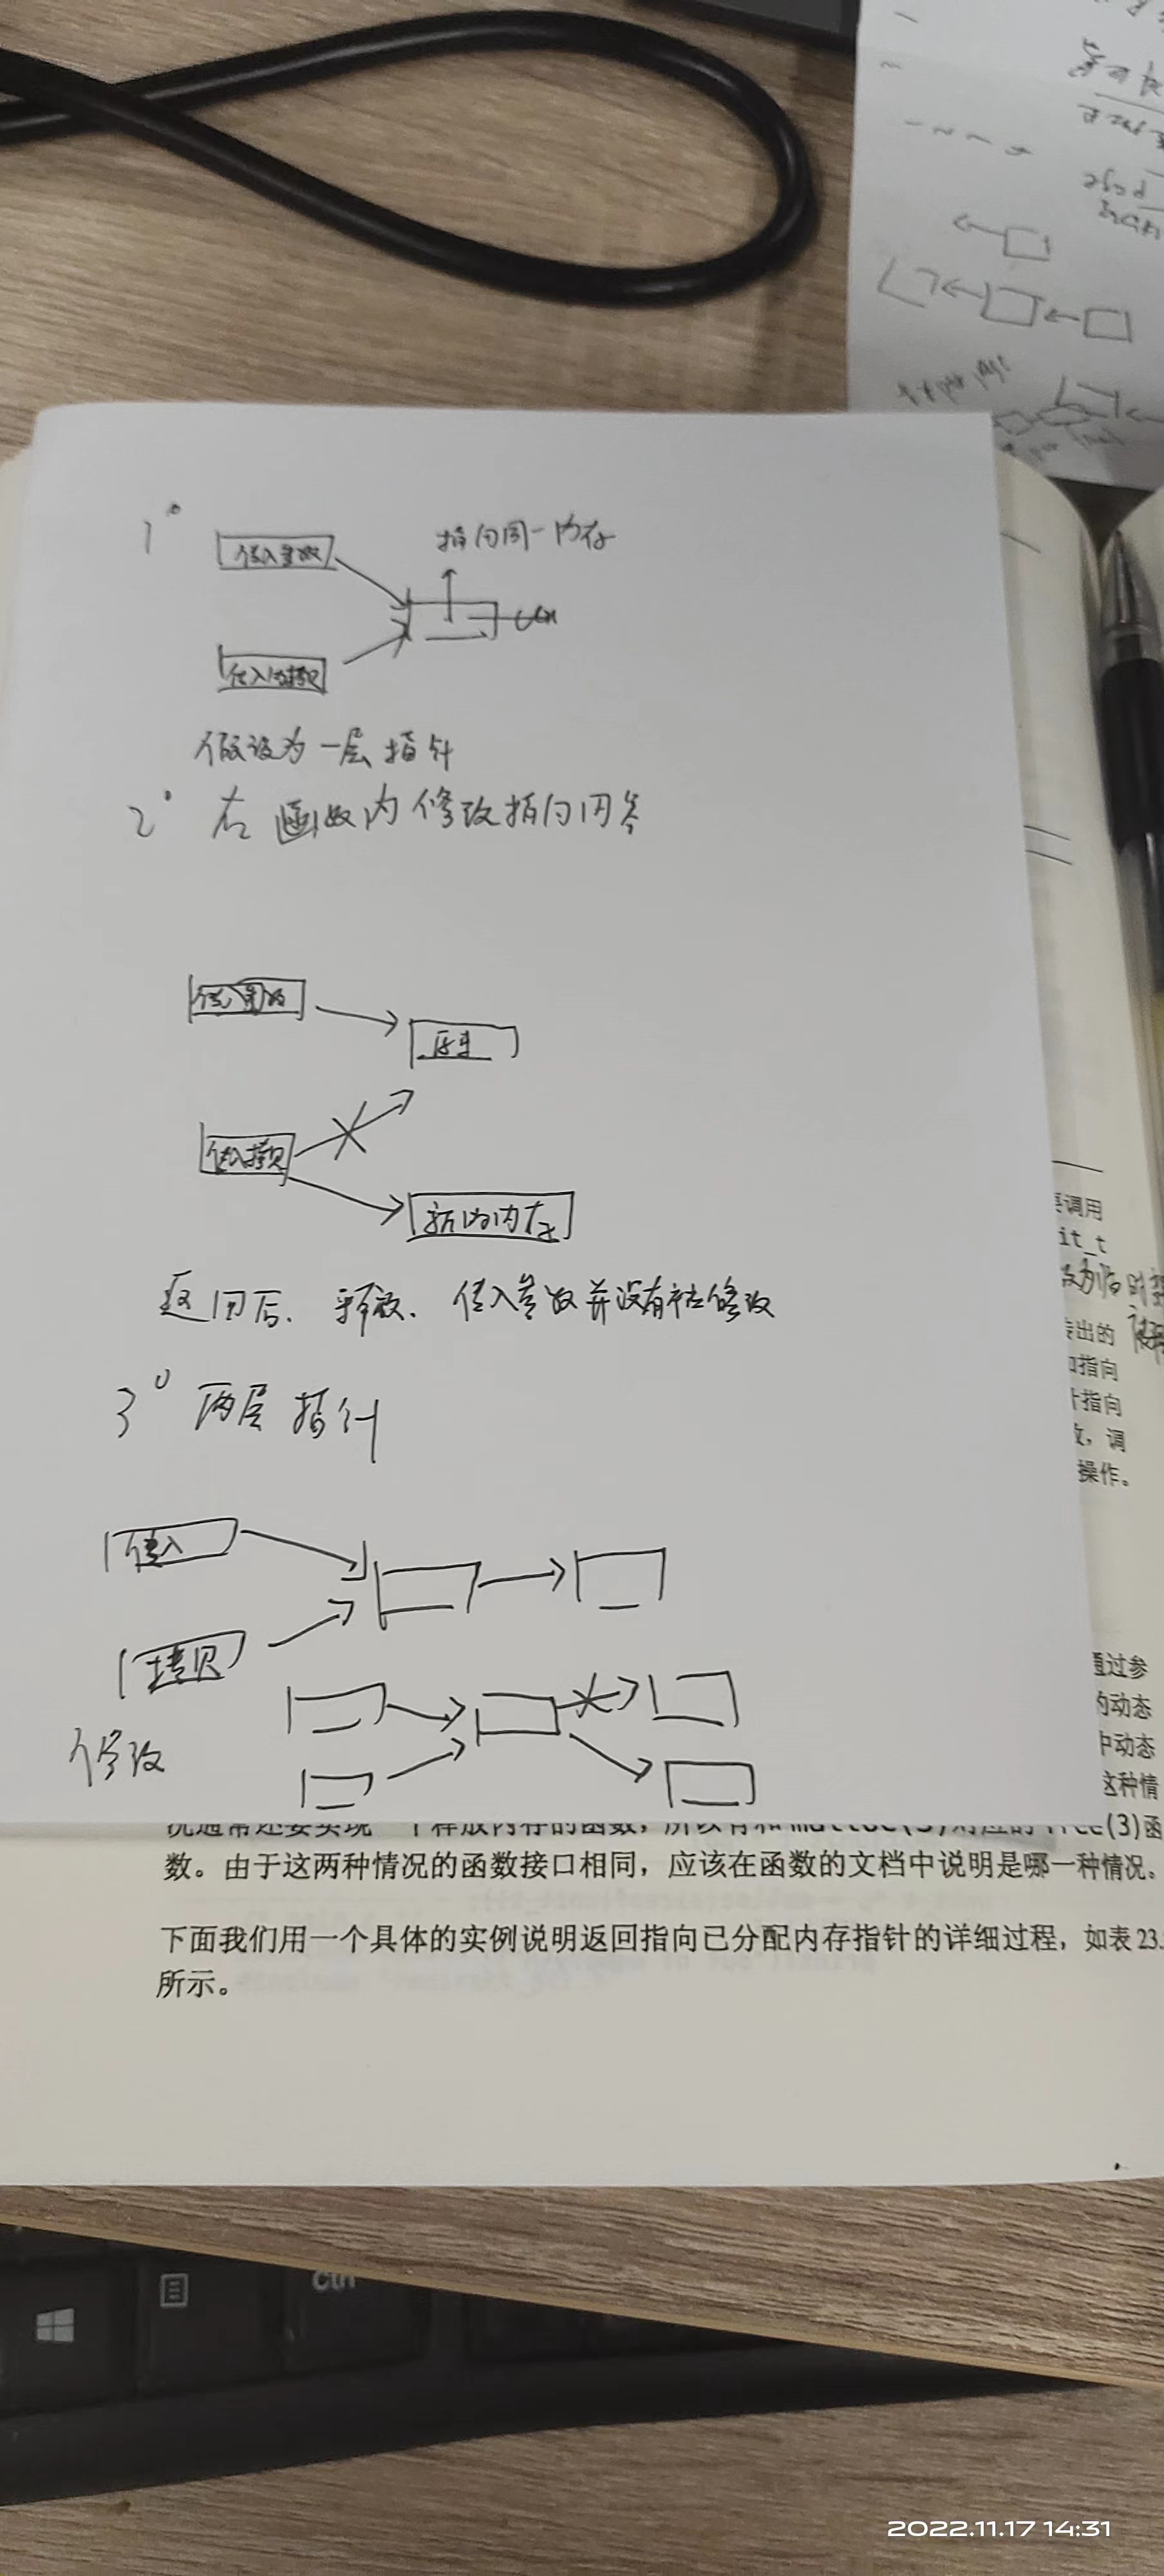 1°
传入参数
指向同一内存
传入的拷贝
假设为一层指针
2° 在函数内修改指向内容
传入参数
原来
传入拷贝
新的内存
返回后. 释放. 传入参数并没有被修改
3° 两层指针
传入
拷贝
修改
调用
it_t
传出的
指向
指向
调
操作。
通过参
的动态
中动态
这种情
况通常还要实现一个释放内存的函数，所以有和malloc(3)对应的free(3)函
数。由于这两种情况的函数接口相同，应该在函数的文档中说明是哪一种情况。
下面我们用一个具体的实例说明返回指向已分配内存指针的详细过程，如表 23.
所示。
Ctrl
2022.11.17 14:31